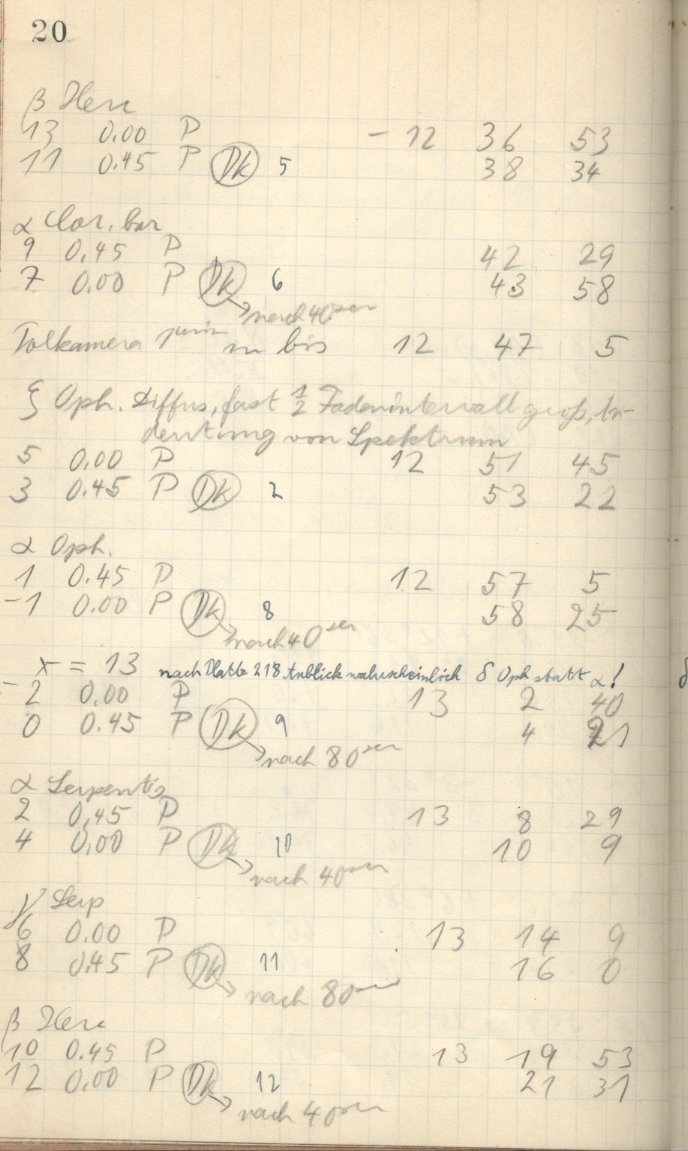 20
β Herc
13 0.00 P - 12 36 53
11 0.45 P Dk 5 38 34
α Cor. bor
9 0,45 P 42 29
7 0.00 P Dk 6 43 58
nach 40 sec
12 47 5
ξ Oph. Diffus, fast 1/2 Fadenintervall groß, An-
deutung von Spektrum
5 0.00 P 12 51 45
3 0.45 P Dk 2 53 22
α Oph.
1 0.45 P 12 57 5
-1 0.00 P Dk 8 58 25
nach 40 sec
x = 13 nach Platte 218. Anblick wahrscheinlich δ Oph statt α!
-2 0.00 P 13 2 40
0 0.45 P Dk 9 4 21
nach 80 sec
α Serpentis
2 0,45 P 13 8 29
4 0,00 P Dk 10 10 9
nach 40 sec
γ Serp
6 0.00 P 13 14 9
8 0.45 P Dk 11 16 0
nach 80 sec
β Herc
10 0.45 P 13 19 53
12 0.00 P Dk 12 21 31
nach 40 sec